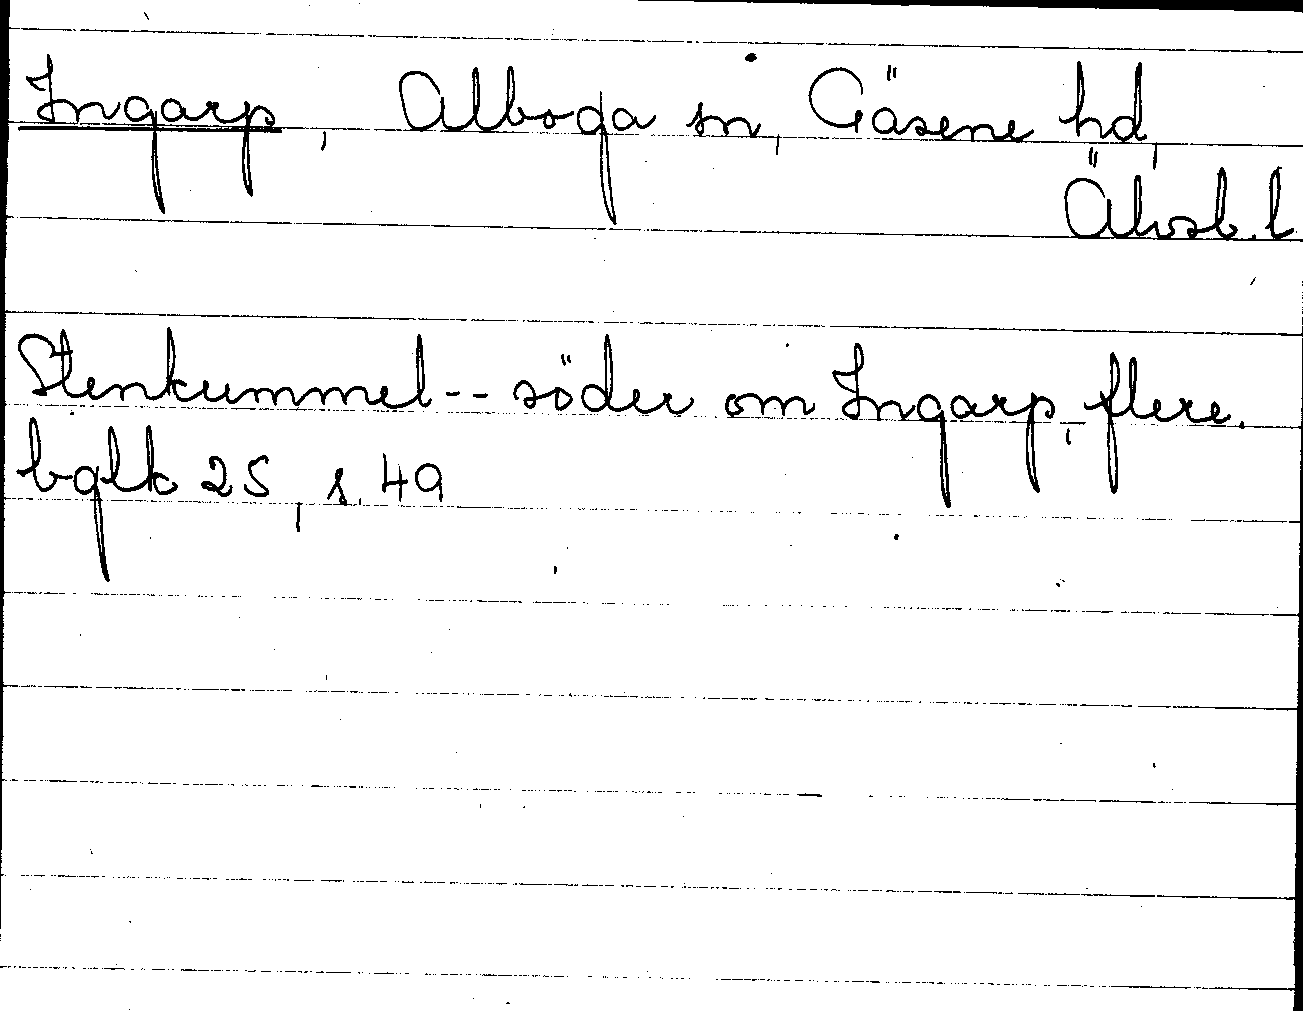 Ingarp, Alboga sn, Gäsene hd,
Älvsb. l.
Stenkummel -- söder om Ingarp, flere.
bglk 25, s. 49